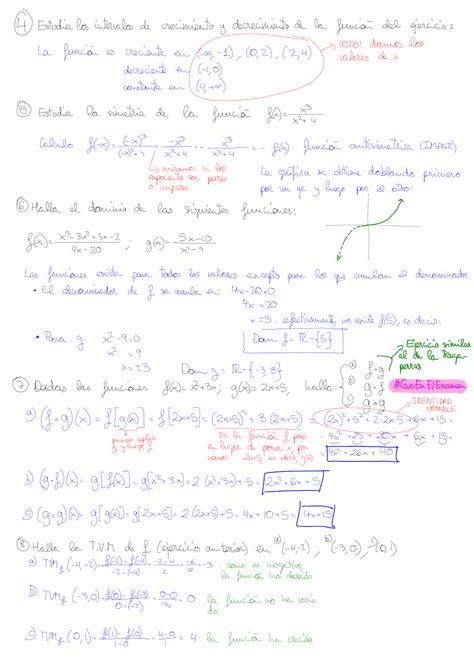 ④ Estudia los intervalos de crecimiento y decrecimiento de la función del ejercicio 2
La función es creciente en (-∞,-1), (0,2), (2,4)
decreciente en (-1,0)
constante en (4,+∞)
¡OJO! damos los valores de x
⑤ Estudia la simetría de la función f(x)= x³/(x²+4)
Calculo f(-x)= (-x)³/((-x)²+4) = -x³/(x²+4) = - x³/(x²+4) = -f(x) función antisimétrica (IMPAR)
↳ miramos si los exponentes son pares o impares
La gráfica se obtiene doblando primero por un eje y luego por el otro:
⑥ Halla el dominio de las siguientes funciones:
f(x)= (x⁵-3x²+4x-2)/(4x-20) ; g(x)= (5x-10)/(x²-9)
Las funciones existen para todos los valores excepto para los que anulan el denominador
• El denominador de f se anula en: 4x-20=0
4x=20
x=5. efectivamente, no existe f(5), es decir:
Dom f = ℝ-{5}
• Para g x²-9=0
x²=9
x=±3
Dom g = ℝ-{-3,3}
Ejercicio similar al de la
#CaeEnElExamen
⑦ Dadas las funciones f(x)=x²+3x; g(x)=2x+5, halla: a) f∘g b) g∘f c) g∘g
IDENTIDAD NOTABLE
a) (f∘g)(x) = f[g(x)] = f[2x+5] = (2x+5)²+3·(2x+5) = (2x)²+5²+2·2x·5+6x+15 =
primero aplico g y luego f
Es la función f pero en lugar de poner x, ponemos 2x+5, es decir, g(x)
= 4x²+25+20x+6x+15 =
4x²+26x+40
b) (g∘f)(x) = g[f(x)] = g[x²+3x] = 2(x²+3x)+5 = 2x²+6x+5
c) (g∘g)(x) = g[g(x)] = g[2x+5] = 2(2x+5)+5 = 4x+10+5 = 4x+15
⑧ Halla la T.V.M. de f (ejercicio anterior) en a) (-4,-2), b) (-3,0), c) (0,1)
a) TVMf(-4,-2) = (f(-2)-f(-4))/(-2-(-4)) = (-2-4)/2 = -6/2 = -3 · como es negativo, la función ha decrecido
b) TVMf(-3,0) = (f(0)-f(-3))/(0-(-3)) = (0-0)/3 = 0 la función no ha variado
c) TVMf(0,1) = (f(1)-f(0))/(1-0) = (4-0)/1 = 4 · la función ha crecido